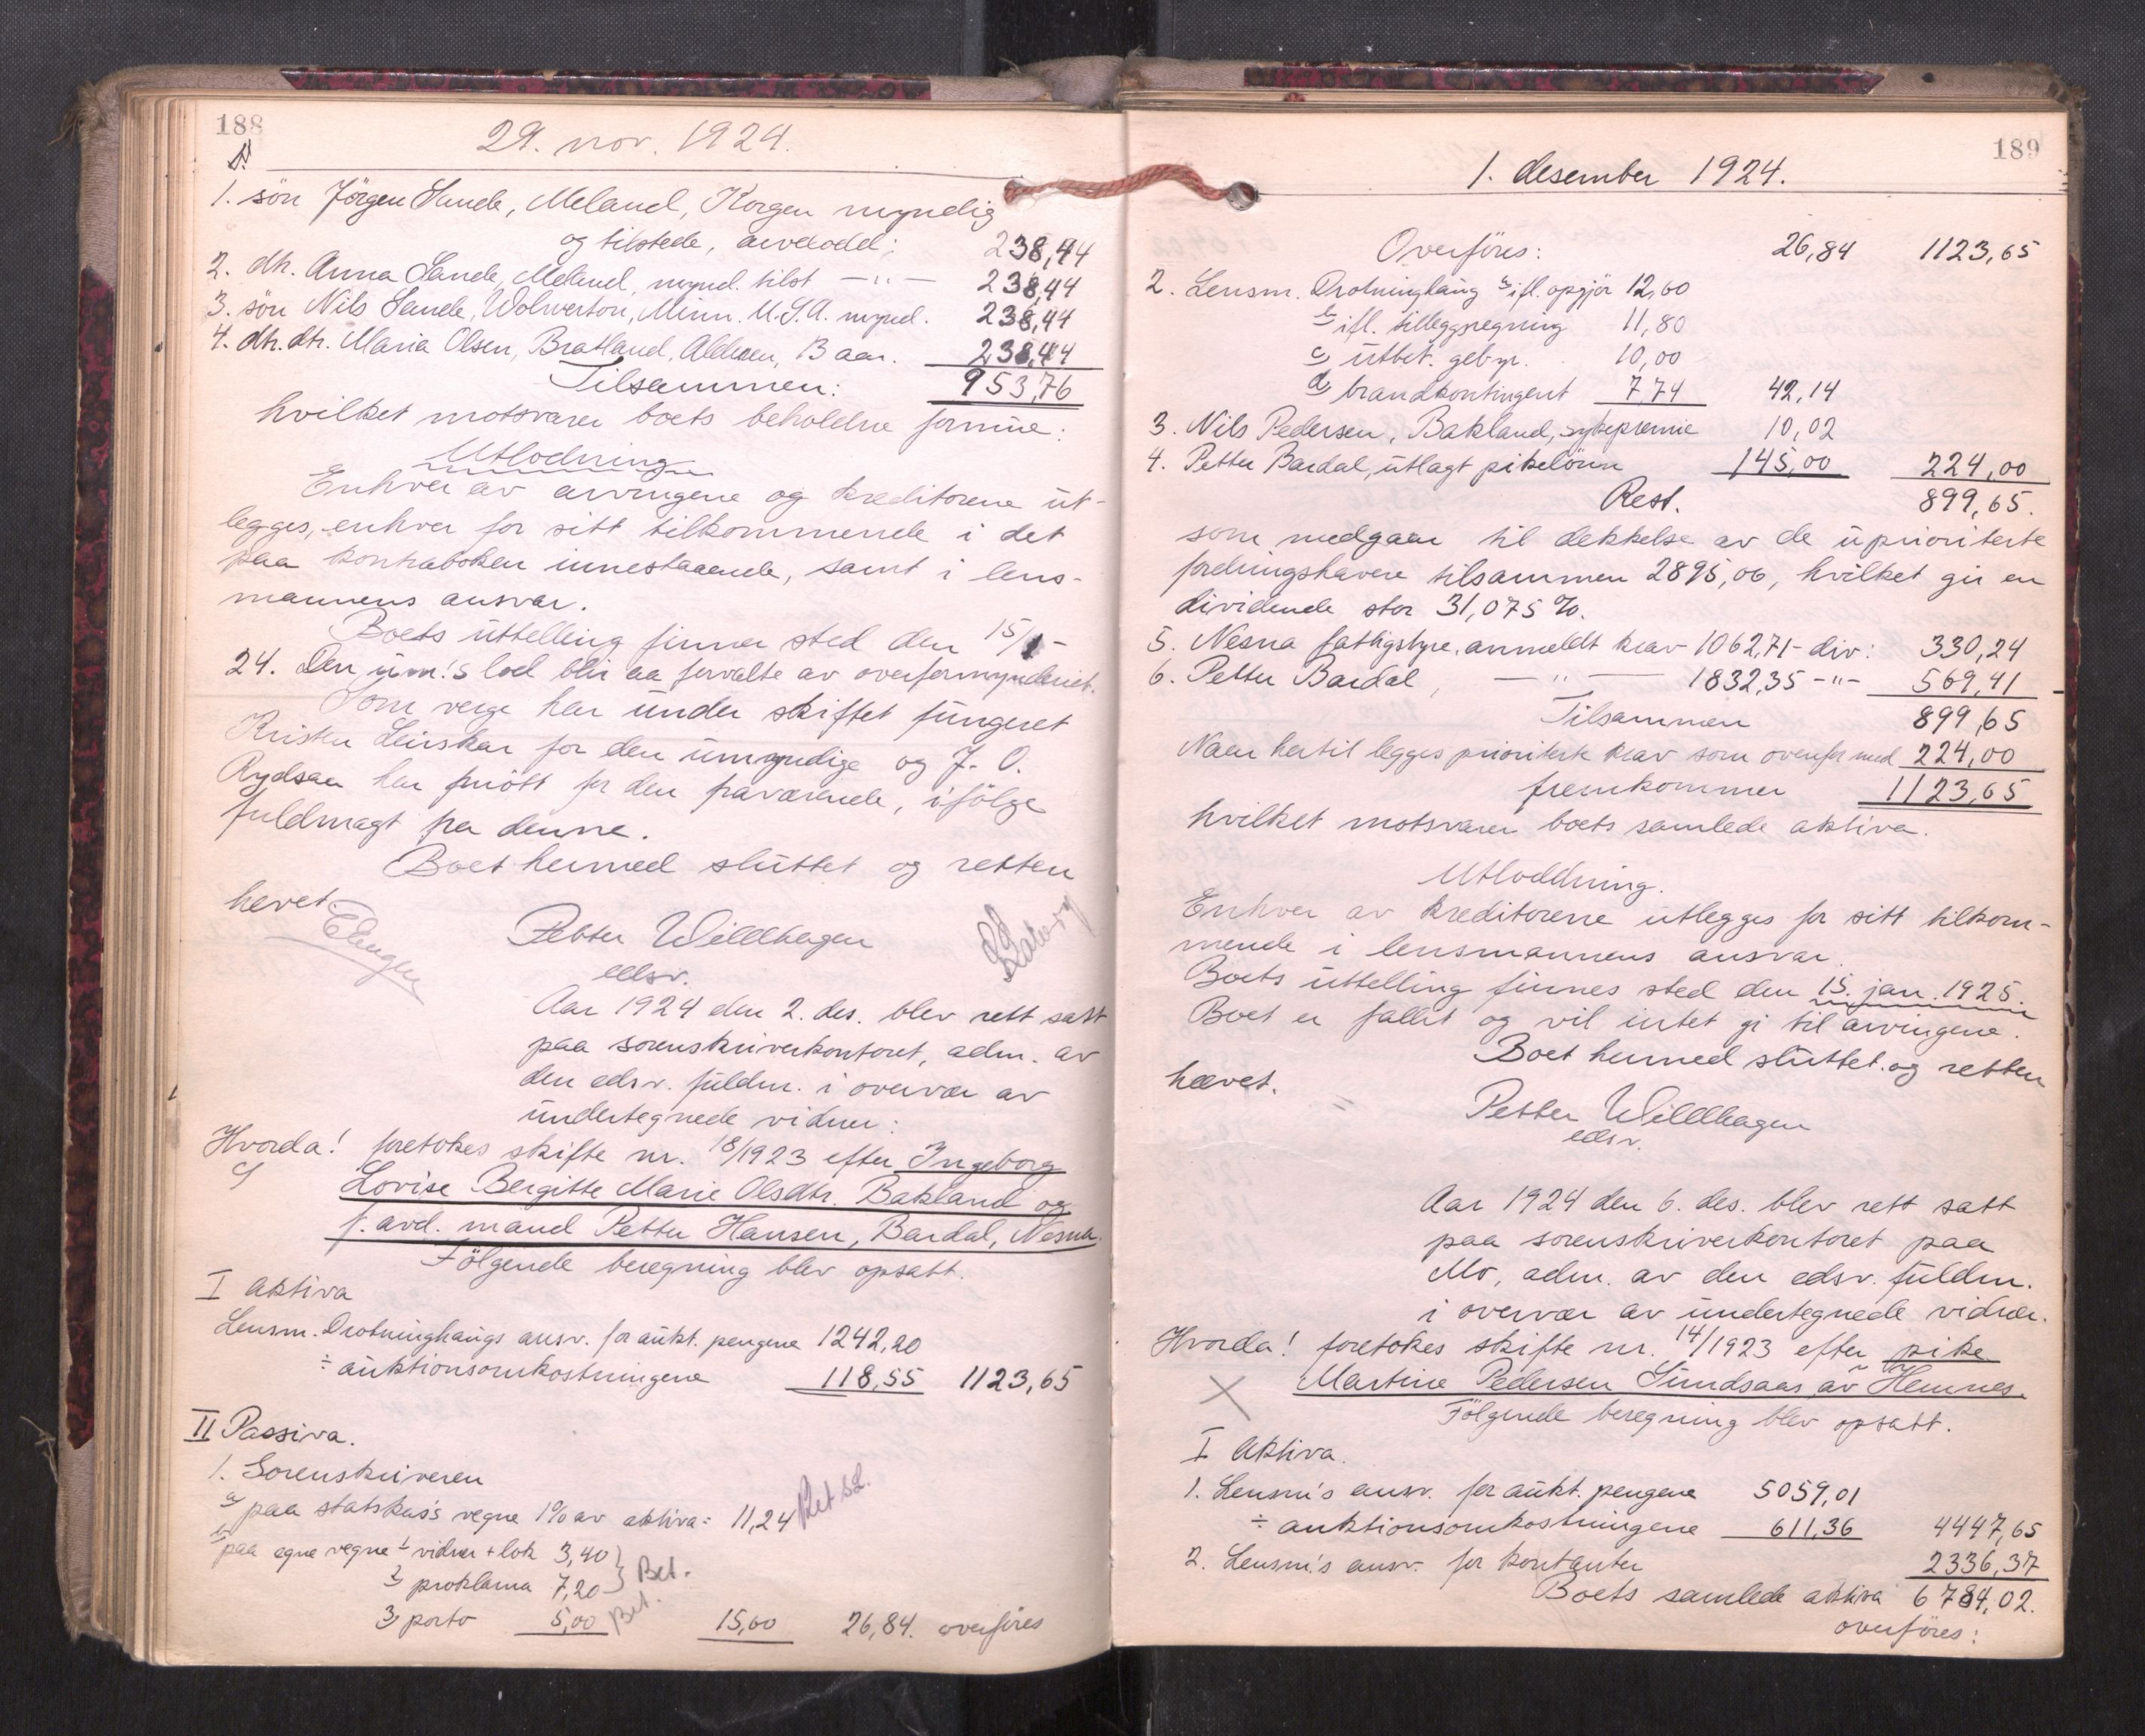 188
29. nov. 1924.
1. sön Jörgen Sande, Meland, Korgen myndig
og tilstede, arvelodd: 238,44
2. dtr. Anna Sande, Meland, mynd. tilst — " — 238,44
3. sön Nils Sande, Wolverton, Minn. U.S.A. mynd. 238,44
4. dtr. dtr. Maria Olsen, Bratland, Aldersen, 13 aar. 238,44
Tilsammen: 953,76
hvilket motsvarer boets beholdne formue:
Utlodning
Enhver av arvingene og kreditorene ut-
legges, enhver for sitt tilkommende i det
paa kontraboken innestaaende, samt i lens-
mannens ansvar.
Boets uttelling finner sted den 15/1-
24. Den um.'s lod blir aa forvalte av overformynderiet.
Som verge har under skiftet fungeret
Kristen Leirskar for den umyndige og J. O.
Rydsaa har for den fraværende, ifölge
fuldmagt fra denne.
Boet hermed sluttet og retten
hevet.
Petter Willhagen
edsv.
Aar 1924 den 2. des. blev rett satt
paa sorenskriverkontoret, adm. av
den edsv. fuldm. i overvær av
undertegnede vidner:
Hvorda! foretokes skifte nr. 18/1923 efter Ingeborg
Lovise Bergitte Marie Olsdtr. Bakland og
f. avd. mand Petter Hansen, Bardal, Nesna.
Fölgende beregning blev opsatt.
I Aktiva
Lensm. Drotninghaugs ansv. for aukt. pengene 1242,20
÷ auktionsomkostningene 118,55 1123,65
II Passiva.
1. Sorenskriveren
a) paa statskas's vegne 1% av aktiva = 11,24 Bet
b) paa egne vegne 1) vidner + lok 3,40
2) proklama 7,20 } Bet.
3) porto 5,00 Bet. 15,60 26,84. overföres
189
1. desember 1924.
Overföres: 26,84 1123,65
2. Lensm. Drotninghaug a) ifl. opgjör 12,60
b) ifl. tilleggsregning 11,80
c) utbet. gebyr. 10,00
d) brandkontingent 7,74 42,14
3. Nils Pedersen, Bakland, sykepremie 10,02
4. Petter Bardal, utlagt pikelönn 145,00 224,00
Rest. 899,65.
som medgaar til dekkelse av de uprioriterte
fordringshavere tilsammen 2895,06, hvilket gir en
dividende stor 31,075 %.
5. Nesna fattigstyre, anmeldt krav - 1062,71 - div: 330,24
6. Petter Bardal, — " — 1832,35 -"- 569,41
Tilsammen 899,65
Naar hertil legges prioriterte krav som ovenfor med 224,00
fremkommer 1123,65
hvilket motsvarer boets samlede aktiva.
Utloddning.
Enhver av kreditorene utlegges for sitt tilkom-
mende i lensmannens ansvar.
Boets uttelling finnes sted den 15. jan. 1925.
Boet er fallit og vil intet gi til arvingene.
Boet hermed sluttet og retten
hævet.
Petter Willhagen
edsv.
Aar 1924 den 6. des. blev rett satt
paa sorenskriverkontoret paa
Mo, adm. av den edsv. fuldm.
i overvær av undertegnede vidner.
Hvorda! foretokes skifte nr. 14/1923 efter pike
Martine Pedersen Sundsaas av Hemnes.
Fölgende beregning blev opsatt.
I Aktiva.
1. Lensm's ansv. for aukt. pengene 5059,01
÷ auktionsomkostningene 611,36 4447,65
2. Lensm's ansv. for kontanter 2336,37
Boets samlede aktiva 6784,02.
overföres: